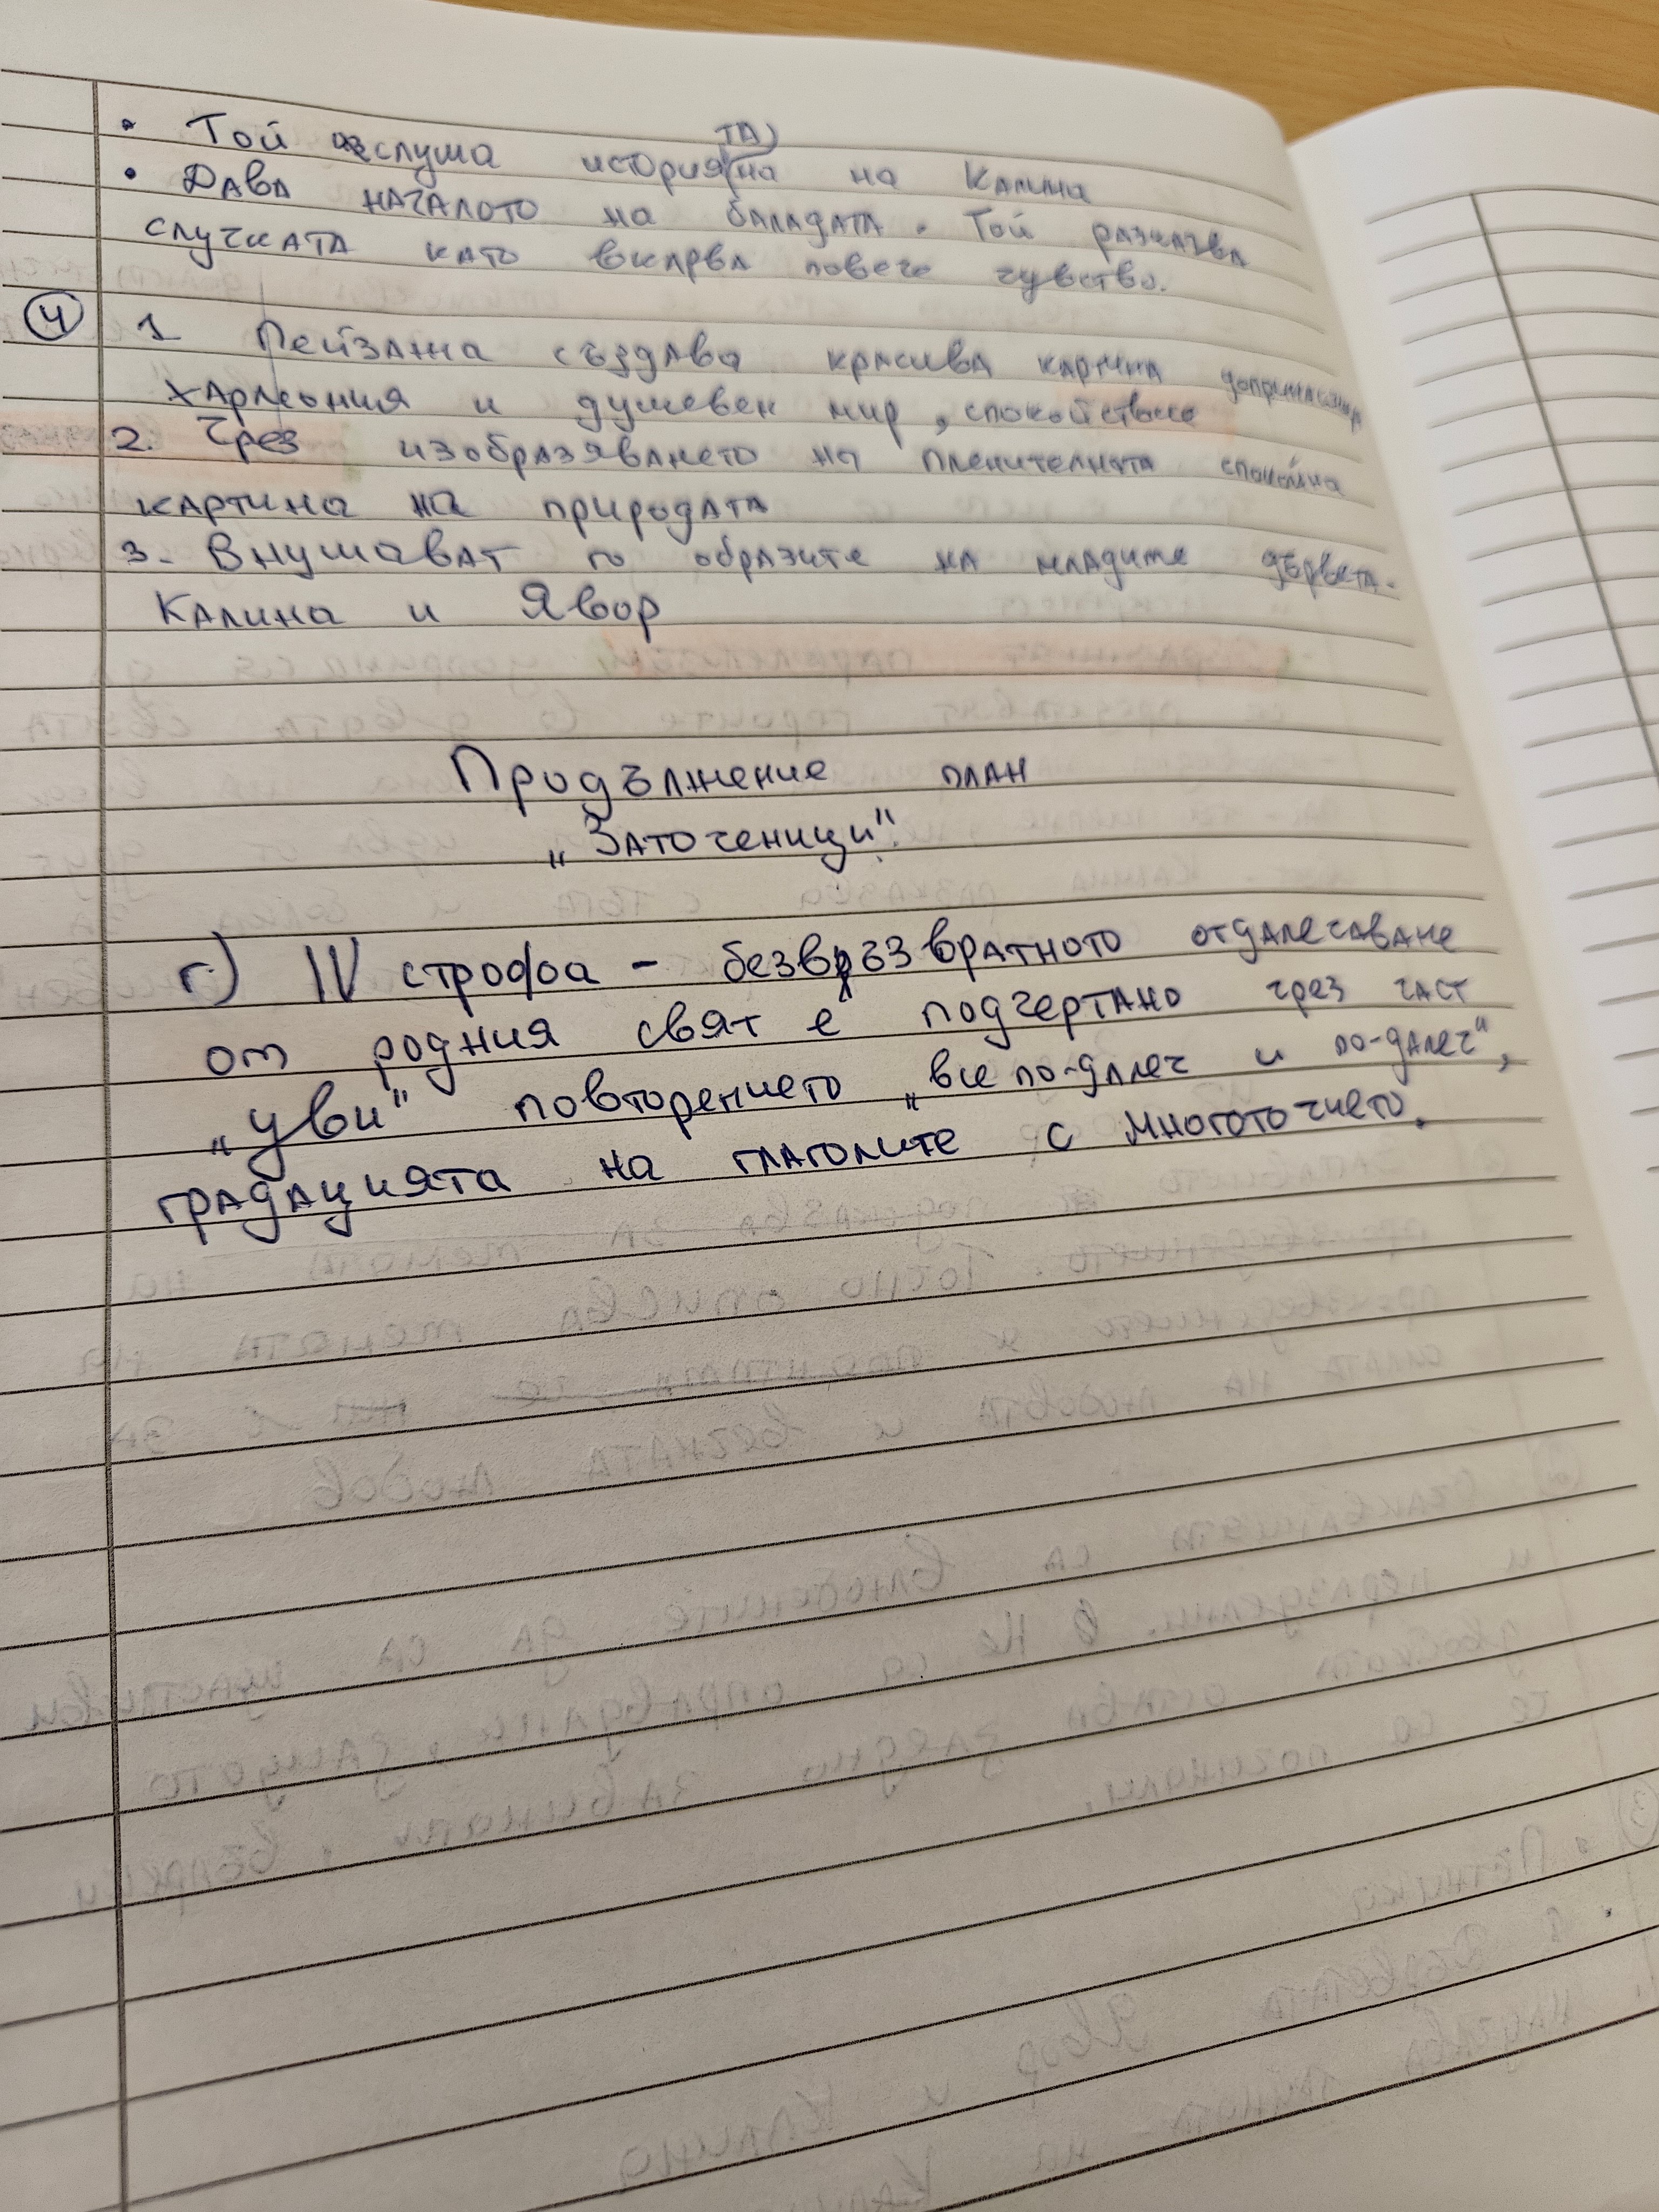 • Той изслуша историята на Калина
• Дава началото на баладата. Той разказва
случката като вкарва повече чувство.
④ 1 Пейзажа създава красива картина
хармония и душевен мир, спокойствие
2. Чрез изобразяването на пленителната спокойна
картина на природата
3. Внушават го образите на младите дървета.
Калина и Явор
Продължение план
„Заточеници".
г) IV строфа - безвъзвратното отдалечаване
от родния свят е подчертано чрез част
„уви" повторението „все по-далеч и по-далеч",
градацията на глаголите с многоточието.